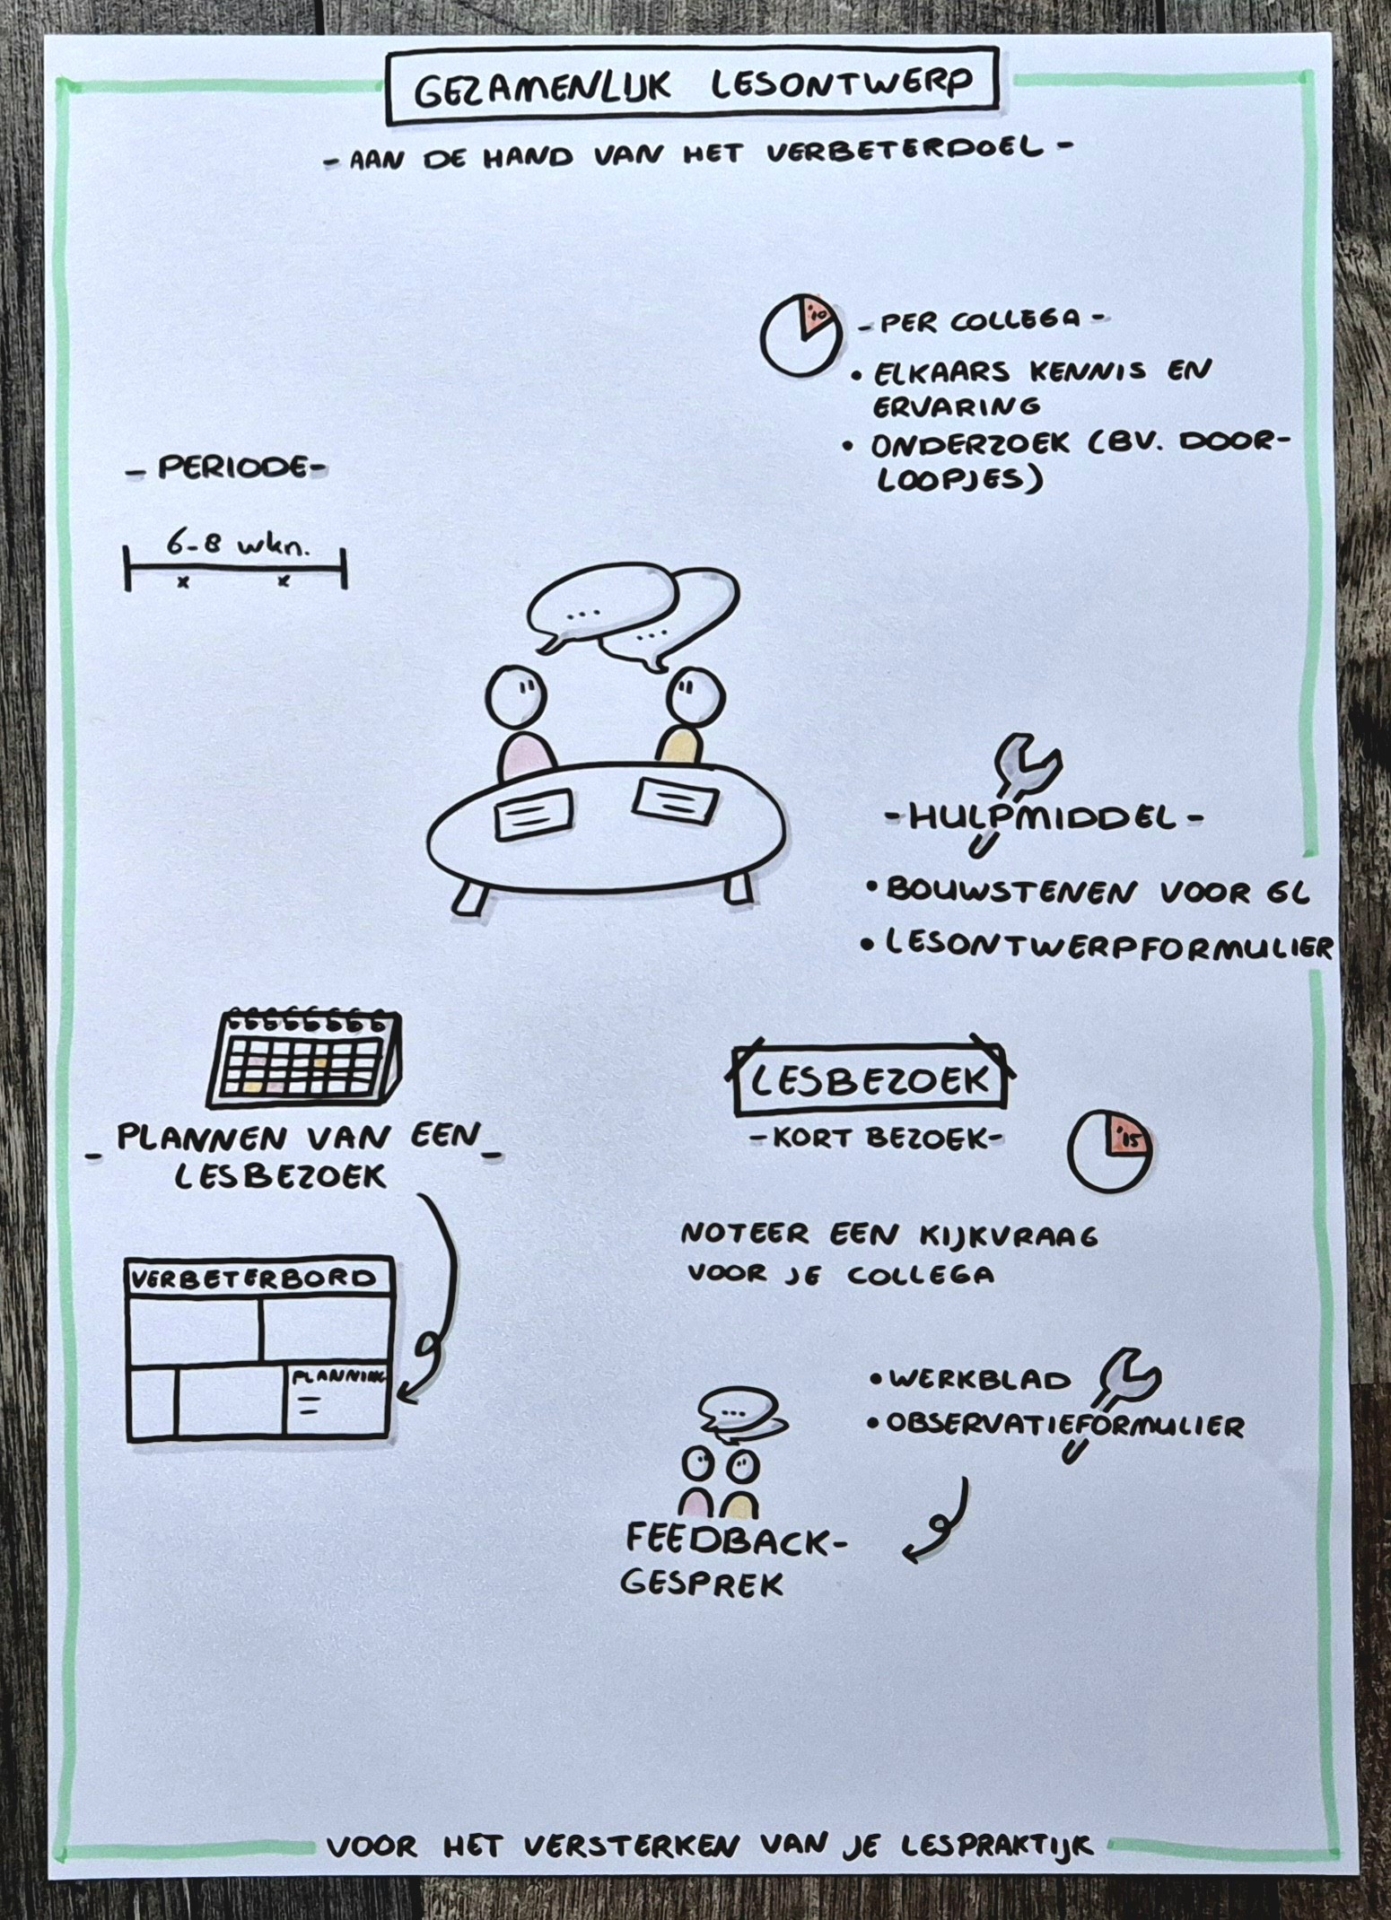 GEZAMENLIJK LESONTWERP
- AAN DE HAND VAN HET VERBETERDOEL -
'10
- PER COLLEGA -
• ELKAARS KENNIS EN
ERVARING
• ONDERZOEK (BV. DOOR-
LOOPJES)
- PERIODE -
6-8 wkn.
x x
- HULPMIDDEL -
• BOUWSTENEN VOOR GL
• LESONTWERPFORMULIER
- PLANNEN VAN EEN -
LESBEZOEK
VERBETERBORD
PLANNING
LESBEZOEK
- KORT BEZOEK -
'15
NOTEER EEN KIJKVRAAG
VOOR JE COLLEGA
• WERKBLAD
• OBSERVATIEFORMULIER
FEEDBACK-
GESPREK
VOOR HET VERSTERKEN VAN JE LESPRAKTIJK